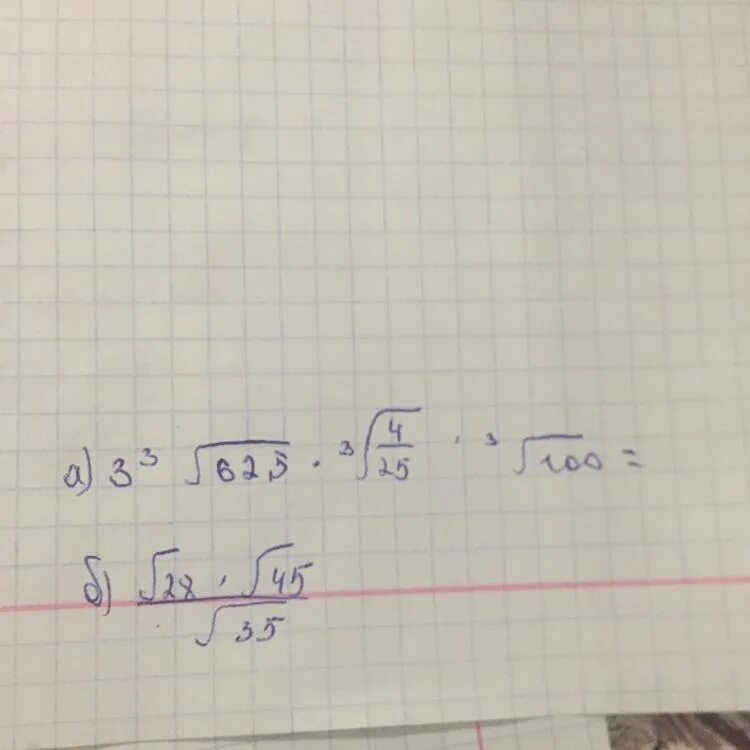 а) 3 ³√62,5 · ³√(4/25) · ³√100 =
б) (√28 · √45)/√35